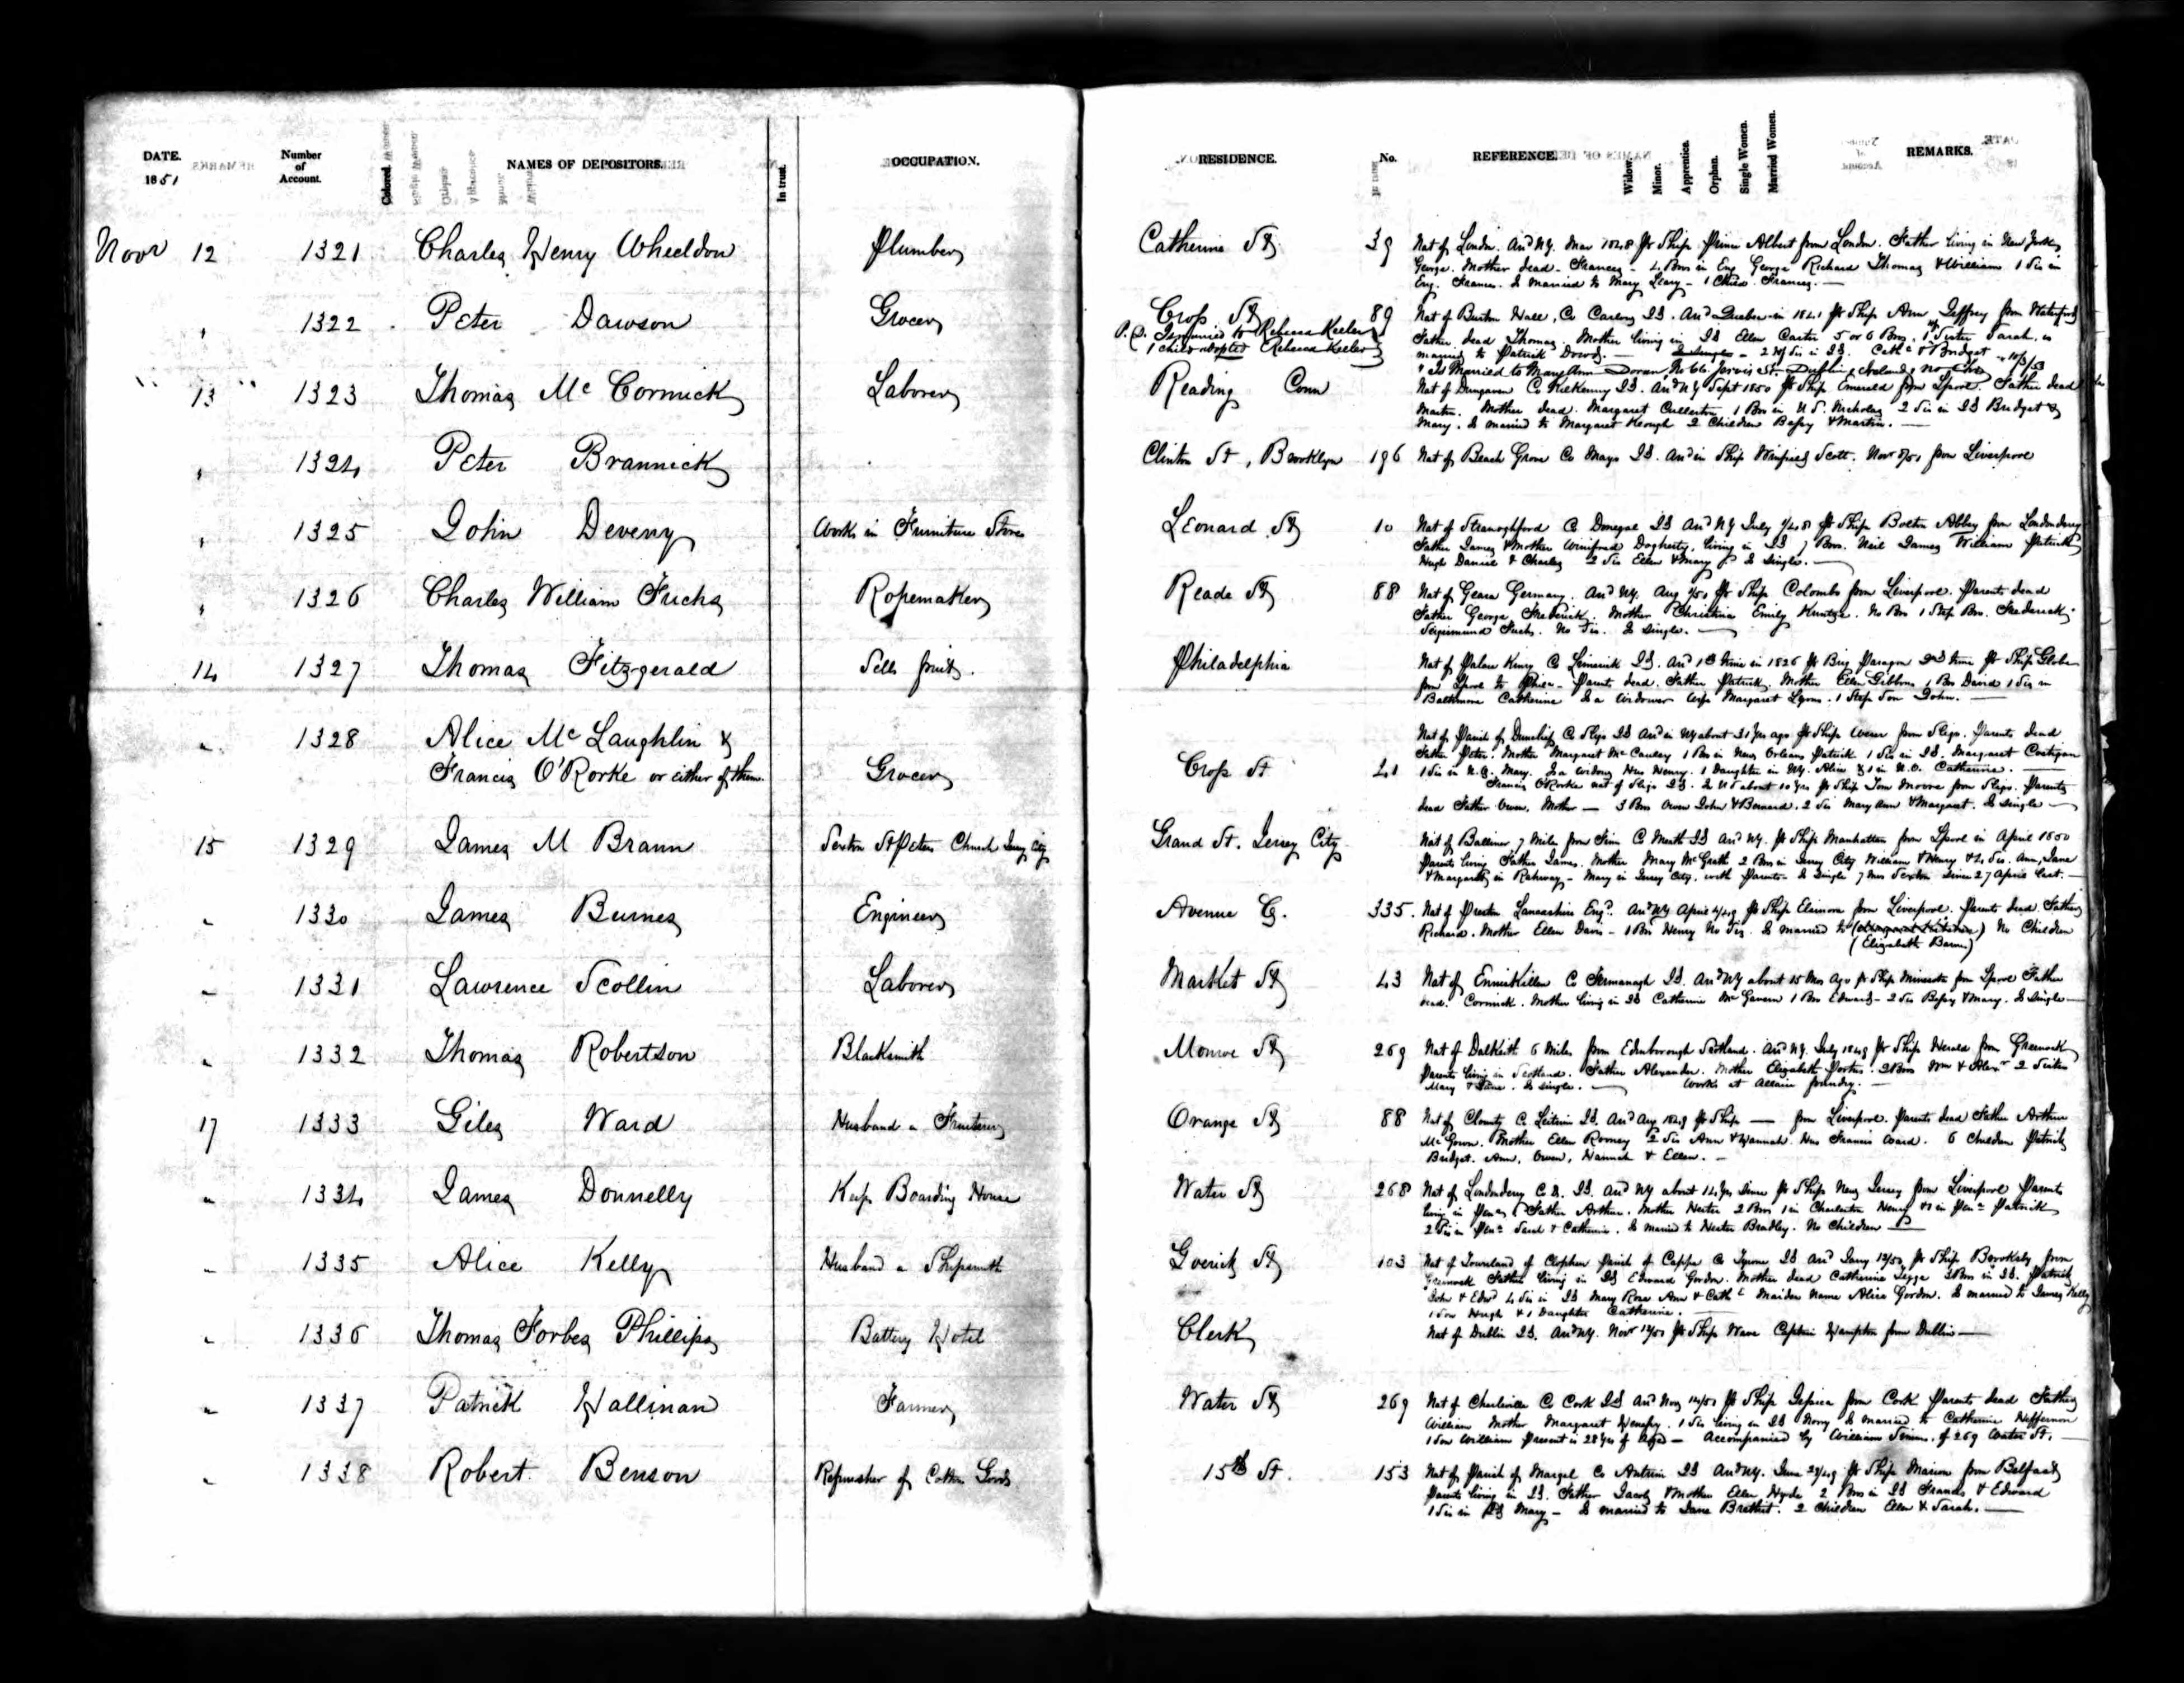 DATE. 1851
Number of Account.
Colored.
NAMES OF DEPOSITORS.
In trust.
OCCUPATION.
RESIDENCE.
No.
REFERENCE.
Widow.
Minor.
Apprentice.
Orphan.
Single Women.
Married Women.
REMARKS.
Novr 12 1321 Charles Henry Wheeldon Plumber Catherine St 39 Nat of London. Arrd NY. Mar 1848 pr Ship Prince Albert from London. Father living in New York
George. Mother dead - Frances - 4 Bros in Eng George Richard Thomas & William 1 Sis in
Eng. Frances. Is married to Mary Leary - 1 Child Frances. —
" 1322 Peter Dawson Grocer Cross St 89 Nat of Burton Hall, Co Carlow Id. Arrd Quebec in 1841 pr Ship Ann Jeffrey from Waterford
P.D. Is married to Rebecca Keeler
1 child adopted Rebecca Keeler
Father dead Thomas. Mother living in Id Ellen Carter 5 or 6 Bros. 1 Sister Sarah. is
married to Patrick Dowd. — Is Single - 2 Hf Sis in Id. Cathe & Bridget
" Is Married to Mary Ann Doran No 66 Jervis St. Dublin, Ireland, no Chn 11/3/53
" 13 1323 Thomas McCormick Laborer Reading Conn Nat of Dungarvan Co Kilkenny Id. Arrd NY Sept 1850 pr Ship Emerald from Lpool. Father dead
Martin. Mother dead. Margaret Cullerton 1 Bro in U S. Nicholas 2 Sis in Id Bridget &
Mary. Is married to Margaret Keough 2 Children Bessy & Martin. —
" 1324 Peter Brannick Clinton St, Brooklyn 196 Nat of Beach Grove Co Mayo Id. Arrd in Ship Winfield Scott. Novr 8/51 from Liverpool
" 1325 John Deveny Works in Furniture Store Leonard St 10 Nat of Co Donegal Id Arrd NY July 1/48 pr Ship Bolton Abbey from Londonderry
Father James & Mother Winifred Dogherty, living in Id 7 Bros. Neil James William Patrick
Hugh Daniel & Charles 2 Sis Ellen & Mary. Is Single. —
" 1326 Charles William Fuchs Ropemaker Reade St 88 Nat of Geara Germany. Arrd NY. Aug 1/50 pr Ship Colombo from Liverpool. Parents dead
Father George Frederick. Mother Christina Emily Kuntze. No Bro 1 Step Bro. Frederick
Fuchs. No Sis. Is single. —
14 1327 Thomas Fitzgerald Sells fruit. Philadelphia Nat of Palace Kenry Co Limerick Id. Arrd 1st time in 1826 pr Brig Paragon 2nd time pr Ship Globe
from Lpool to Phila - Parents dead. Father Patrick. Mother Ellen Gibbons 1 Bro David 1 Sis in
Baltimore Catherine Is a widower Wife Margaret Lyons. 1 Step Son John. —
" 1328 Alice McLaughlin &
Francis O'Rorke or either of them Grocer Cross St 41
Nat of Parish of Co Sligo Id Arrd in NY about 21 yrs ago pr Ship Wear from Sligo. Parents dead
Father Peter. Mother Margaret McCauley 1 Bro in New Orleans Patrick 1 Sis in Id. Margaret Costigan
1 Sis in N.O. Mary. Is a widow Hus Henry. 1 Daughter in NY. Alice & 1 in N.O. Catherine. —
Francis O'Rorke nat of Sligo Id. In US about 10 yrs pr Ship Tom Moore from Sligo. Parents
dead Father Owen. Mother — 3 Bros Owen John & Bernard. 2 Sis Mary Ann & Margaret. Is single —
15 1329 James M Brann Sexton St Peters Church Jersey City Grand St. Jersey City Nat of Ballinor, 7 Miles from Trim Co Meath Id Arrd NY. pr Ship Manhattan from Lpool in April 1850
Parents living Father James. Mother Mary McGrath 2 Bros in Jersey City William & Henry & 4 Sis. Ann, Jane
& Margaret in Rahway - Mary in Jersey City. with Parents - Is Single 7 mos Sexton Since 27 April last. —
" 1330 James Burnes Engineer Avenue C. 335. Nat of Preston Lancashire Engd. Arrd NY April 4/49 pr Ship Elsinore from Liverpool. Parents dead Father
Richard. Mother Ellen Davis - 1 Bro Henry No Sis. Is married to No Children
(Elizabeth Barns)
" 1331 Lawrence Scollin Laborer Market St 43 Nat of Enniskillen Co Fermanagh Id. Arrd NY about 15 Mos ago pr Ship Minnesota from Lpool Father
dead. Cormick. Mother living in Id Catherine McGavern 1 Bro Edward - 2 Sis Bessy & Mary. Is Single —
" 1332 Thomas Robertson Blacksmith Monroe St 269 Nat of Dalkeith 6 Miles from Edinborough Scotland. Arrd NY. July 1849 pr Ship Herald from Greenock
Parents living in Scotland. Father Alexander. Mother Elizabeth Porter. 2 Bros Wm & Alexr 2 Sisters
Mary & Jane. Is single. — Works at Allaire foundry. —
17 1333 Giles Ward Husband a Fruiterer Orange St 88 Nat of Clounty Co Leitrim Id. Arrd Aug 1849 pr Ship — from Liverpool. Parents dead Father Arthur
McGowen. Mother Ellen Rooney 2 Sis Ann & Hannah. Hus Francis Ward. 6 Children Patrick
Bridget. Ann, Owen, Hannah & Ellen. —
" 1334 James Donnelly Keeps Boarding House Water St 268 Nat of Londonderry C.D. Id. Arrd NY about 14 yrs Since pr Ship New Jersey from Liverpool Parents
living in Pena Father Arthur. Mother Hester 2 Bros 1 in Charleston Henry & 1 in Pena Patrick
2 Sis in Pena Sarah & Catherine. Is married to Hester Bradley. No Children —
" 1335 Alice Kelly Husband a Shipsmith Goerick St 103 Nat of Townland of Clophen Parish of Cappa Co Tyrone Id Arrd Jany 12/50 pr Ship Brooksby from
Greenock Father living in Id Edward Gordon. Mother dead Catherine Tegge 3 Bros in Id. Patrick
John & Edwd 4 Sis in Id Mary Rose Ann & Cathe Maiden Name Alice Gordon. Is married to James Kelly
1 Son Hugh & 1 Daughter Catherine. —
" 1336 Thomas Forbes Phillips Battery Hotel Clerk Nat of Dublin Id. Arrd NY. Novr 12/51 pr Ship Wave Captain Hampton from Dublin —
" 1337 Patrick Hallinan Farmer Water St 269 Nat of Charleville Co Cork Id Arrd Nov 14/51 pr Ship Jessica from Cork Parents dead Father
William Mother Margaret Henessy. 1 Sis living in Id Nony Is married to Catherine Heffernon
1 Son William Present is 28 yrs of Age — Accompanied by William Simms. of 269 Water St. —
" 1338 Robert Benson Refinisher of Cotton Goods 15th St. 153 Nat of Parish of Co Antrim Id Arrd NY. June 23/49 pr Ship Marion from Belfast
Parents living in Id. Father Jacob & Mother Ellen Hyde 2 Bros in Id Francis & Edward
1 Sis in Id Mary - Is married to Jane Brethert. 2 Children Ellen & Sarah. —